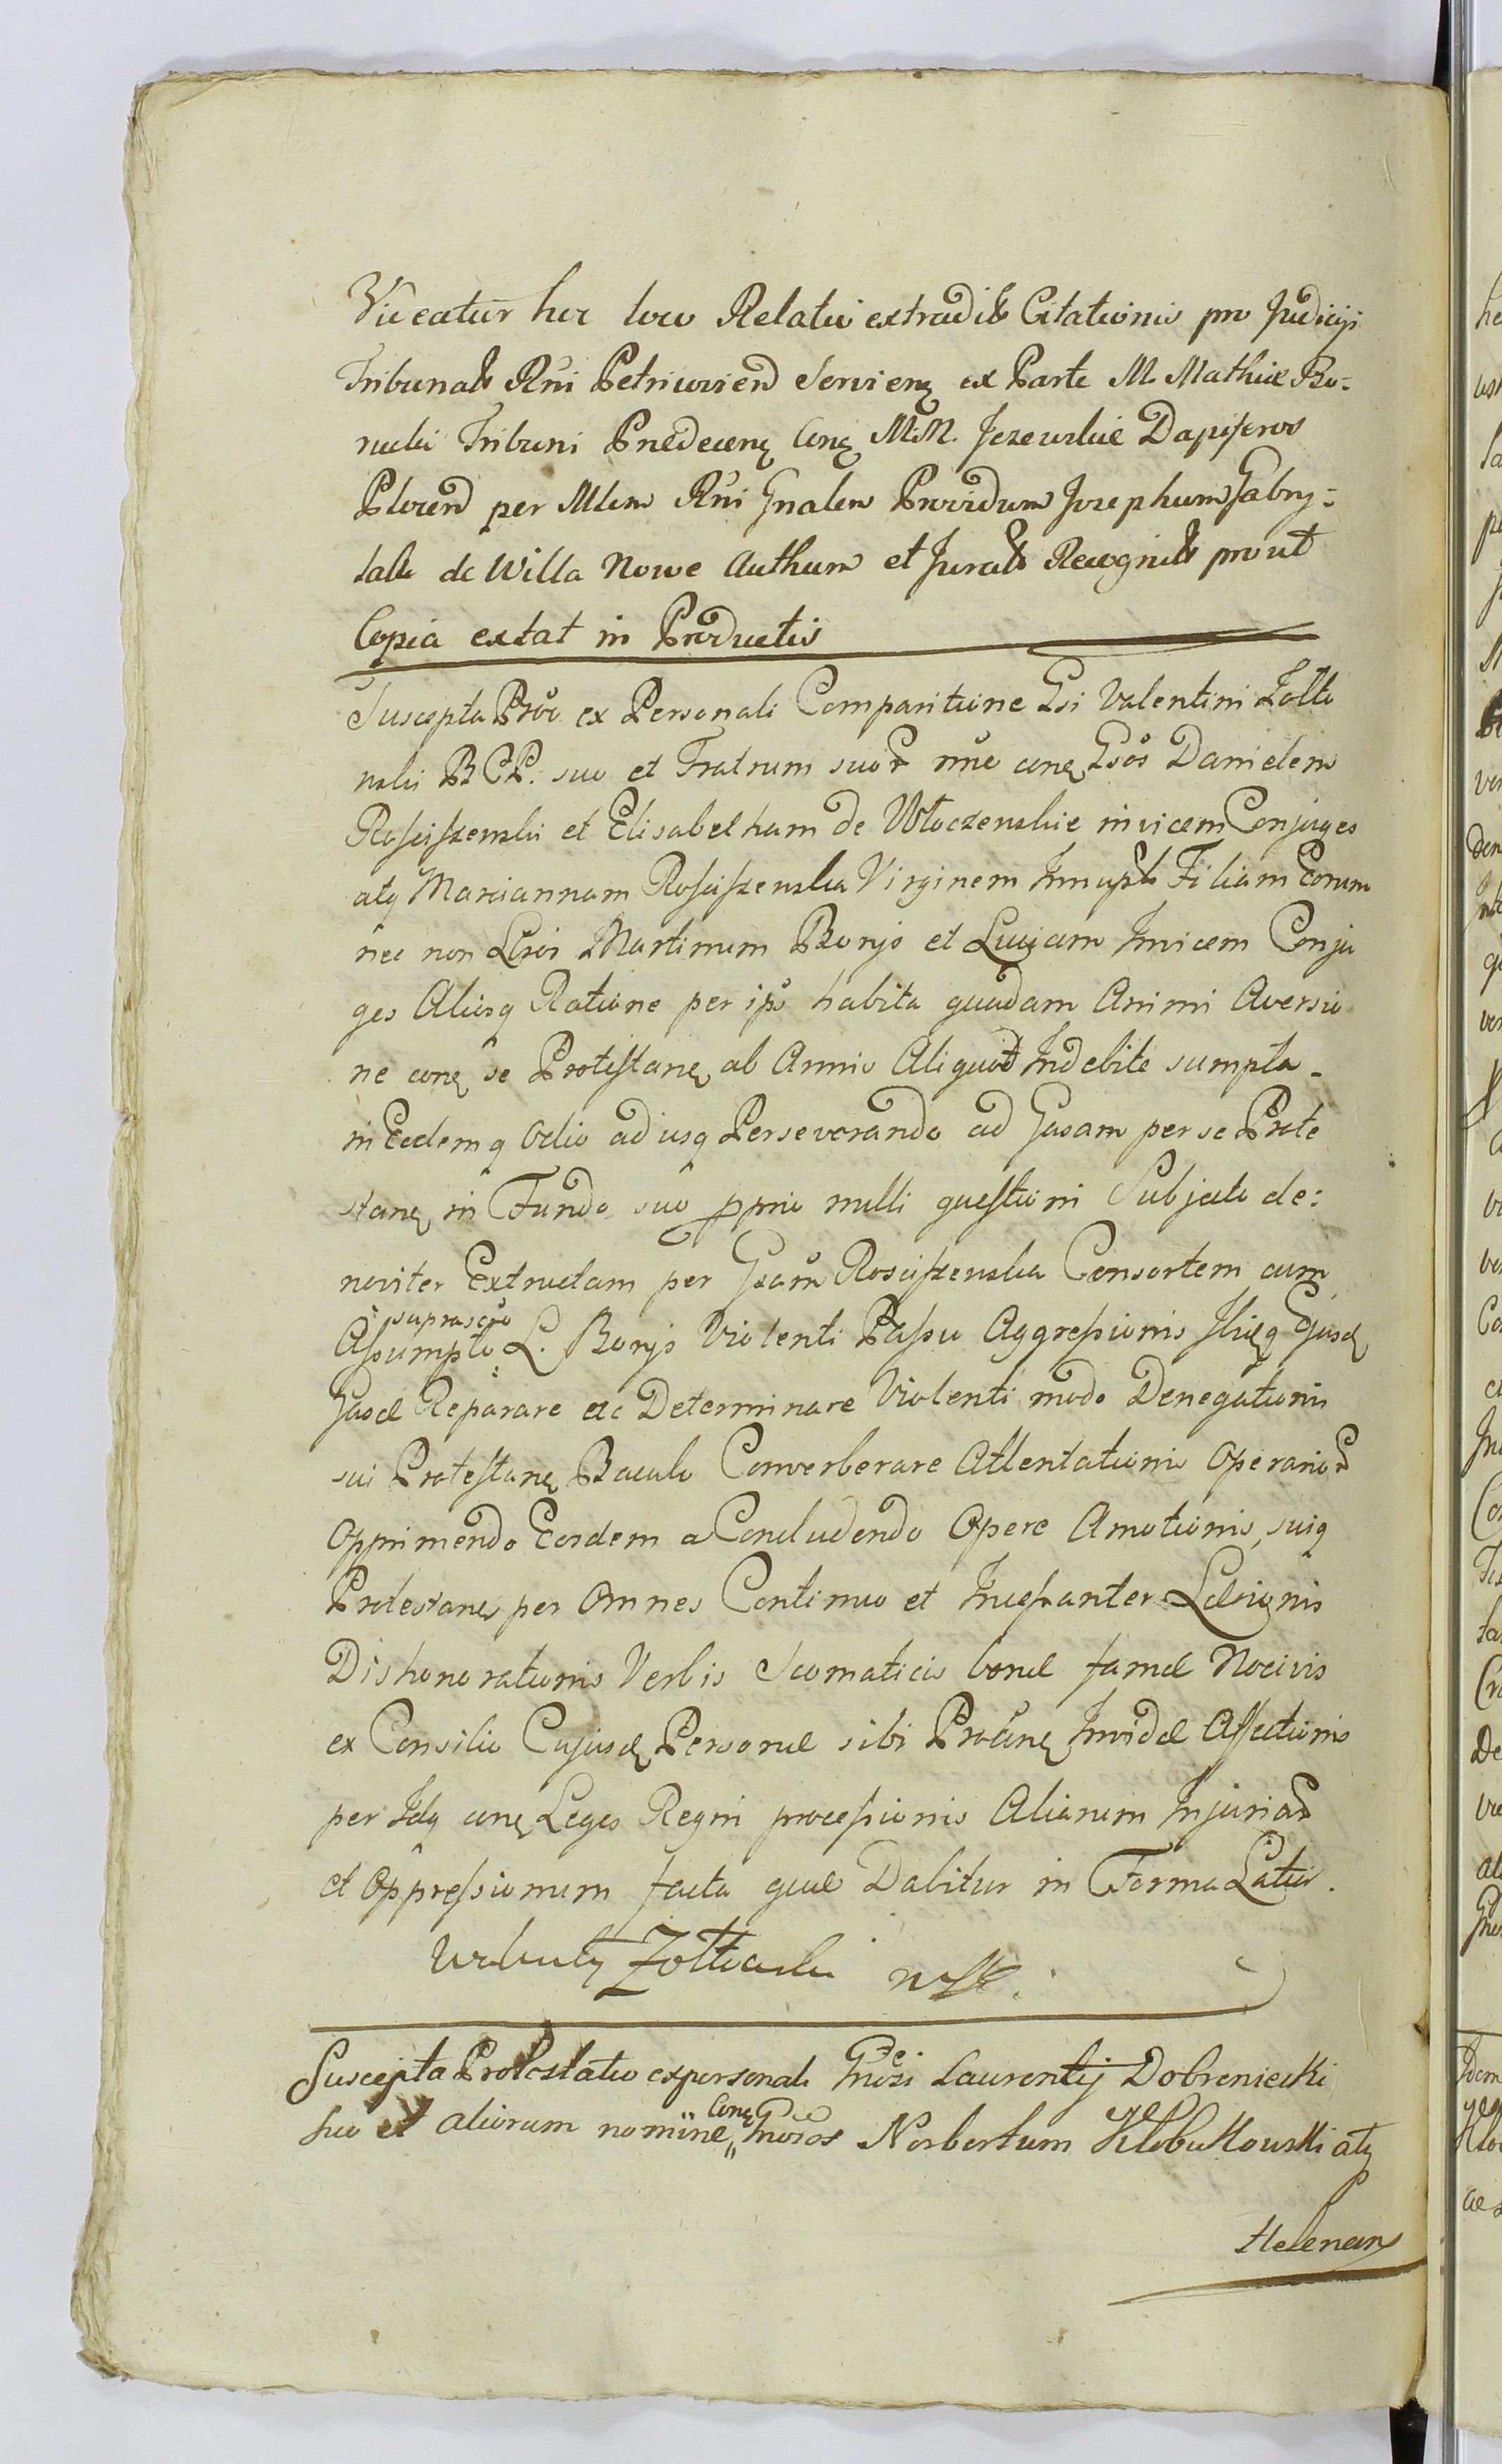 Vieatur hic loco Relatio extradits Citationis pro Judicijs
Tribunals Rñi Petricovien Servien ex Parte M. Mathiæ Bo-
nucki Tribuni Con M.M. Jezewskie Dapiferos
Plocen per Mlem Rñi Gnalem Providum Josephum Gabry=
 de Willa Nowe Authum et Jurats Recognits prout
Copia extat in Productis
Suscepta Proõ ex Personali Comparitione Gsi Valentini Zolto
wski BCP. suo et Fratrum suor nne con Gsos Danielem
Rosciszewski et Elisabetham de Wloczewskie invicem Conjuges
atq Mariannam Rosciszewska Virginem Innupts Filiam Eorum
nec non Lbos Martinum Borys et Luciam Invicem Conju
ges Aliosq Ratione per ips habita quadam Animi Aversio
ne con se Protestane ab Annis Aliquot Indebite sumpta
in Eodemq Odio ad usq Perseverando ad Gasam per se Prote
stane in Fundo suo pprio nulli questioni Subjecto de:
noviter Extructam per Gsam Rosciszewska Consortem cum
Assumpto suprascto L. Borys Violenti Passu Aggressionis Ejusd
Gasæ Reparare etc Determinare Violenti modo Denegationis
sui Protestane Baculo Converberare Attentationis Operarior
Opprimendo Eosdem a Concludendo Opere Amotionis, suiq
Protestane per Omnes Continuo et Incessanter Læsionis
Dishonorationis Verbis Scomaticis bonæ famæ Nocivis
ex Consilio Cujusd Personæ sibi Protane Invidæ Affectionis
per Idq con Leges Regni processionis Aliarum Injuriar
et Oppressionum facta quæ Dabitur in Forma Latio.
 Zoltowski
Suscepta Protestatio ex personali Gnosi Laurentij Dobreniecki
suo et aliorum nomine Con Gnosos Norbertum Klobukowski atq
Helenam